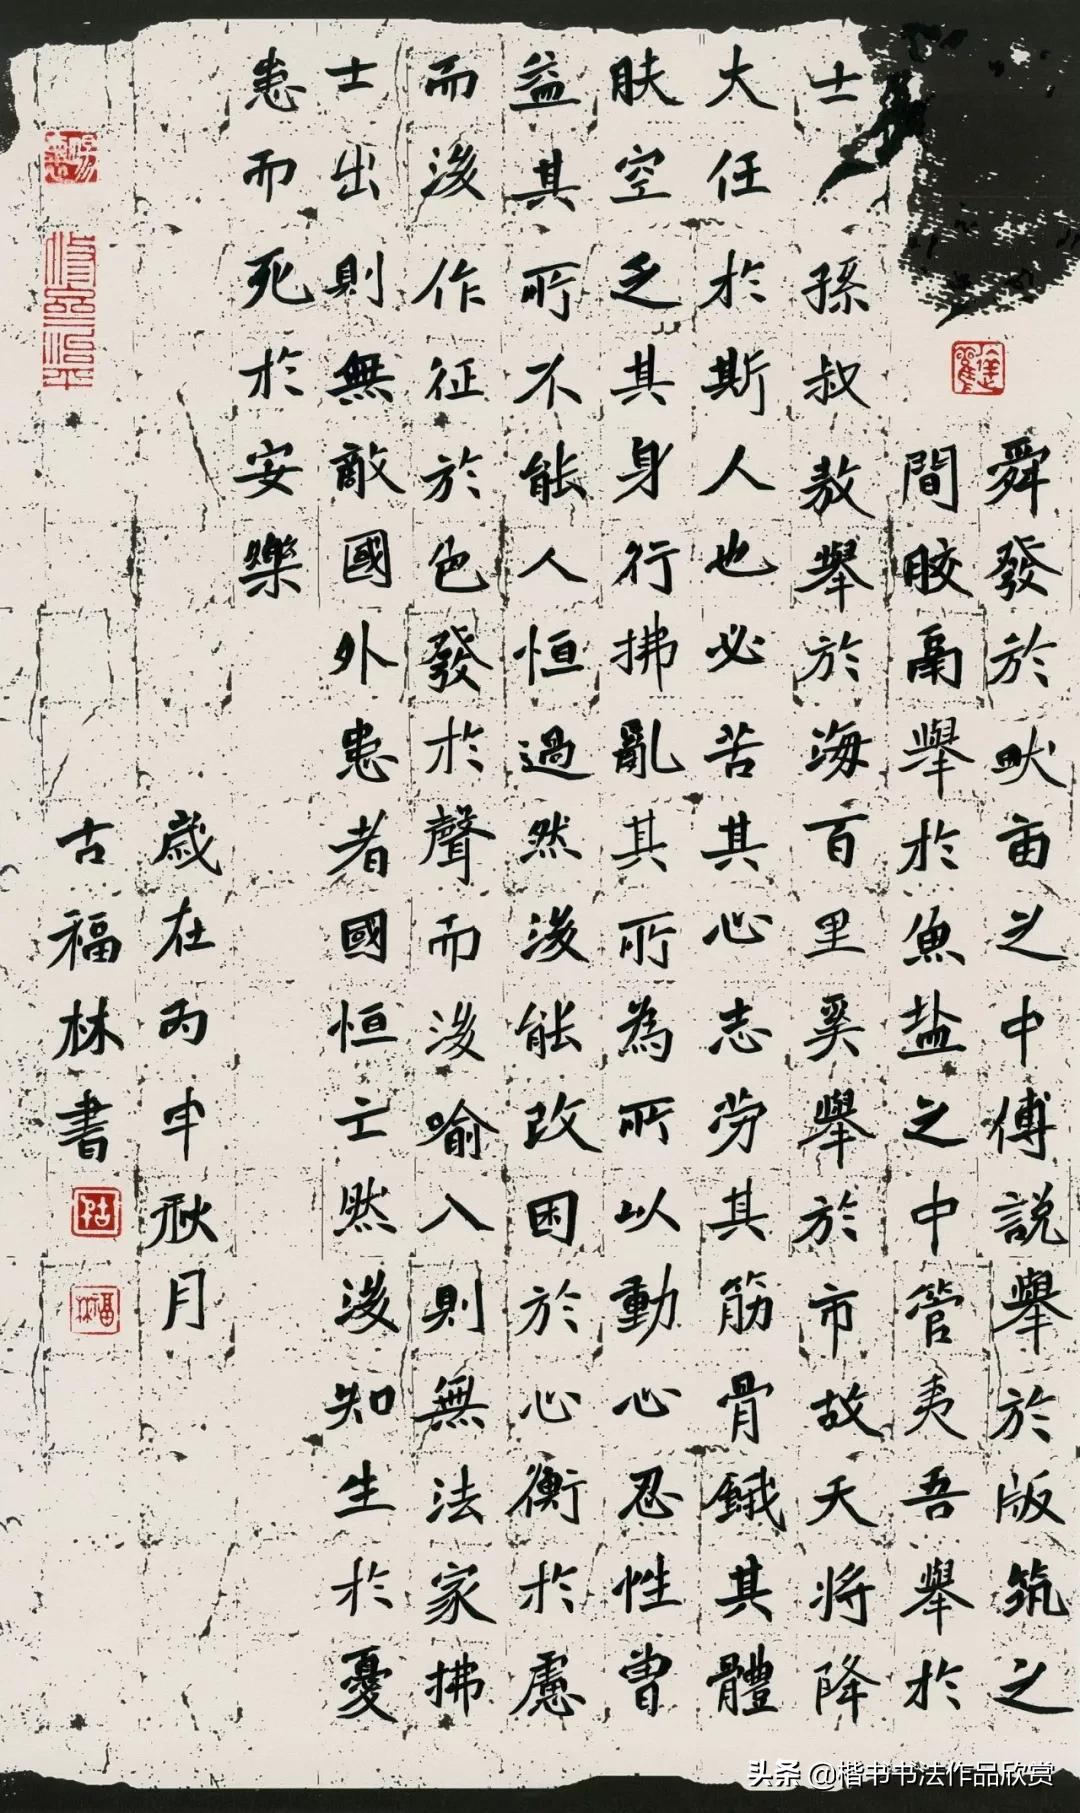 舜發於畎亩之中傅説舉於版筑之
間胶鬲舉於魚盐之中管夷吾舉於
士孫叔敖舉於海百里奚舉於市故天将降
大任於斯人也必苦其心志劳其筋骨餓其體
肤空乏其身行拂亂其所為所以動心忍性曾
益其所不能人恒過然後能改困於心衡於慮
而後作征於色發於聲而後喻入則無法家拂
士出則無敵國外患者國恒亡然後知生於憂
患而死於安樂
歲在丙申秋月
古福林書
头条 @楷书书法作品欣赏